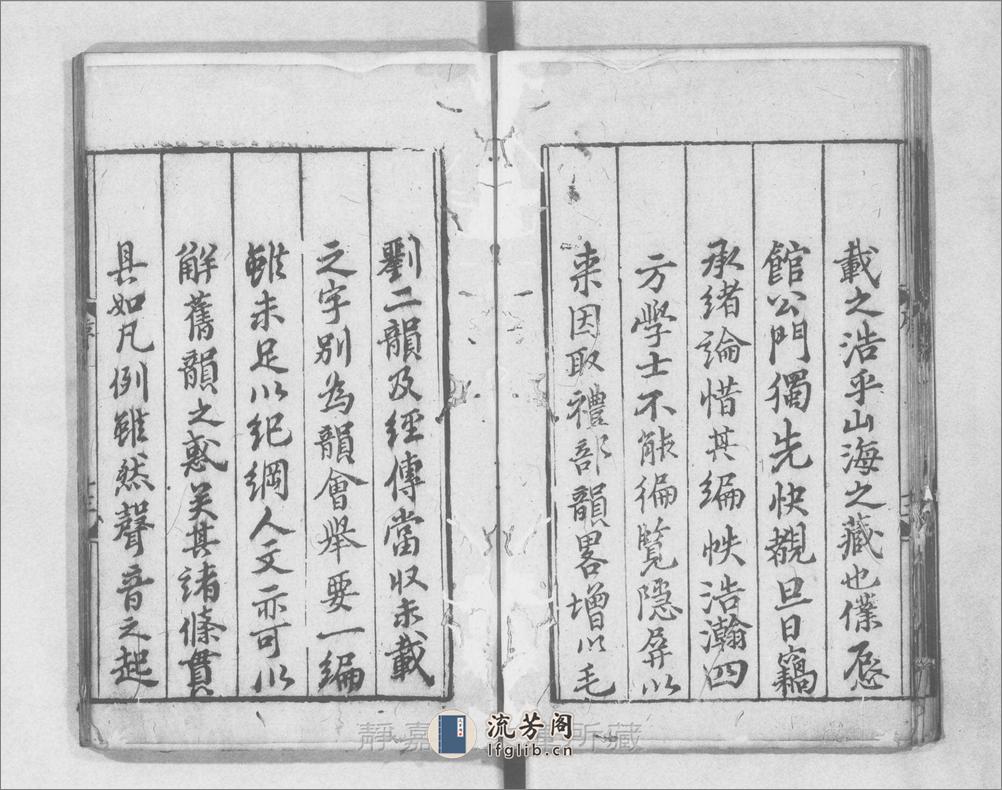 載之浩乎山海之藏也僕辱
館公門獨先快覩旦日竊
承緒論惜其編帙浩瀚四
方學士不能徧覽隱屏以
來因取禮部韻畧增以毛
劉二韻及經傳當収未載
之字別為韻會舉要一編
雖未足以紀綱人文亦可以
解舊韻之惑矣其諸條貫
具如凡例雖然聲音之起
靜嘉
所藏
流芳阁
lfglib.cn